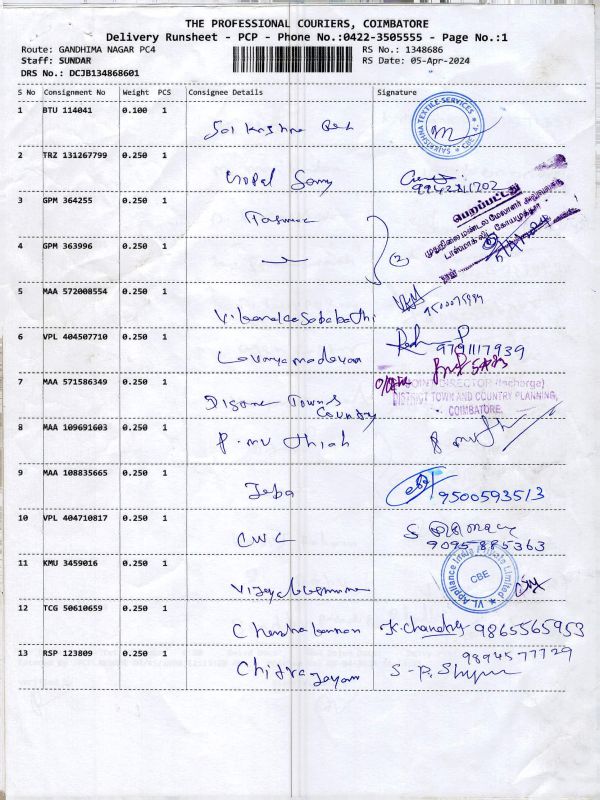 THE PROFESSIONAL COURIERS, COIMBATORE
Delivery Runsheet - PCP - Phone No.:0422-3505555 - Page No.:1
Route: GANDHIMA NAGAR PC4 RS No.: 1348686
Staff: SUNDAR RS Date: 05-Apr-2024
DRS No.: DCJB134868601
S No Consignment No Weight PCS Consignee Details Signature
1 BTU 114041 0.100 1 Sai Krishna
SAIKRISHNA TEXTILE SERVICES
2 TRZ 131267799 0.250 1 Gopal Samy
3 GPM 364255 0.250 1 Tasmac
பெறப்பட்டது
4 GPM 363996 0.250 1 (2)
5 MAA 572008554 0.250 1
6 VPL 404507710 0.250 1 Lavanya
9791117939
7 MAA 571586349 0.250 1 Towns
Country
JOINT DIRECTOR (Incharge)
DISTRICT TOWN AND COUNTRY PLANNING,
COIMBATORE.
8 MAA 109691603 0.250 1 P. muthiah
9 MAA 108835665 0.250 1 Jeba 9500593513
10 VPL 404710817 0.250 1 CWC
9095885363
11 KMU 3459016 0.250 1
VL Appliance India Private Limited
CBE
12 TCG 50610659 0.250 1 Chandra kannan K. Chandra 9865565953
13 RSP 123809 0.250 1 Chitra 9894577729